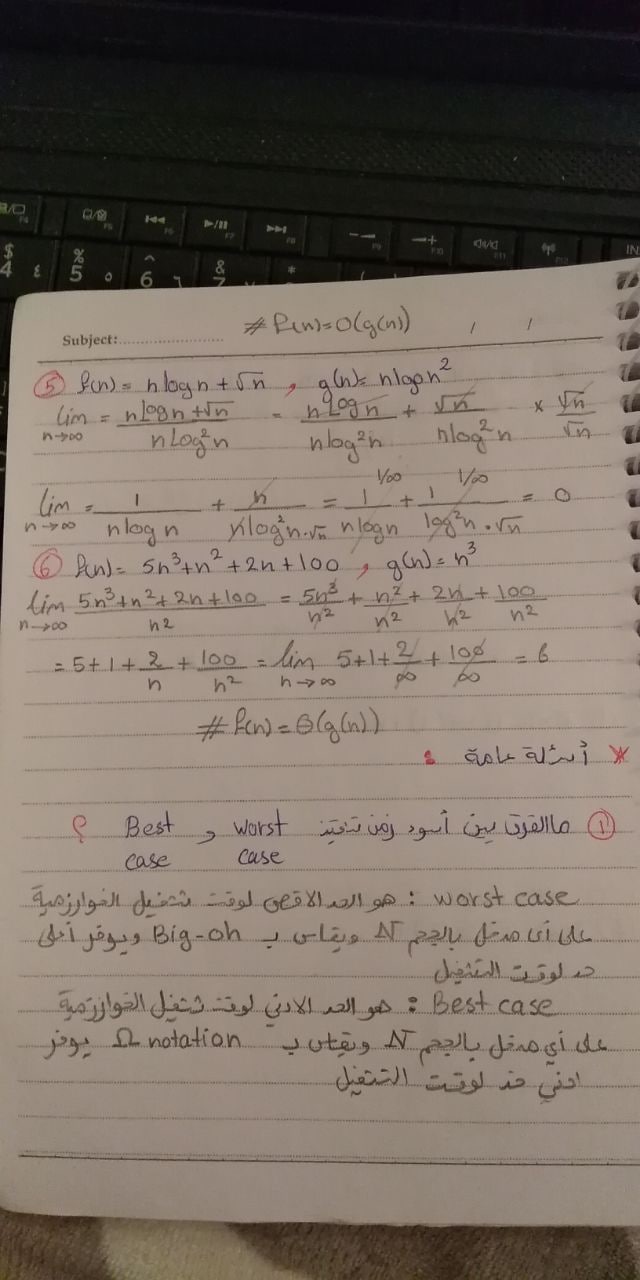 Subject: # f(n)=O(g(n)) / /
⑤ f(n)= nlogn+√n , g(n)= nlogn²
lim n→∞ = nLogn+√n / nLog²n = nLogn / nlog²n + √n / nlog²n × √n / √n
lim n→∞ = 1 / nlogn + n / nlog²n·√n = 1 / nlogn 1/∞ + 1 / log²n·√n 1/∞ = 0
⑥ f(n)= 5n³+n²+2n+100 , g(n)= n³
lim n→∞ 5n³+n²+2n+100 / n² = 5n³ / n² + n² / n² + 2n / n² + 100 / n²
= 5+1+ 2 / n + 100 / n² = lim n→∞ 5+1+ 2 / ∞ + 100 / ∞ = 6
# f(n)=θ(g(n))
* أسئلة عامة :
① ما الفرق بين أسود زمن تنفيذ worst case و Best case ؟
worst case : هو الحد الاقصى لوقت تشغيل الخوارزمية
على أي مدخل بالحجم N ويقاس ب Big-oh ويوفر أعلى
حد لوقت التشغيل
Best case : هو الحد الادني لوقت تشغيل الخوارزمية
على أي مدخل بالحجم N ويقاس ب Ω notation يوفر
ادني حد لوقت التشغيل